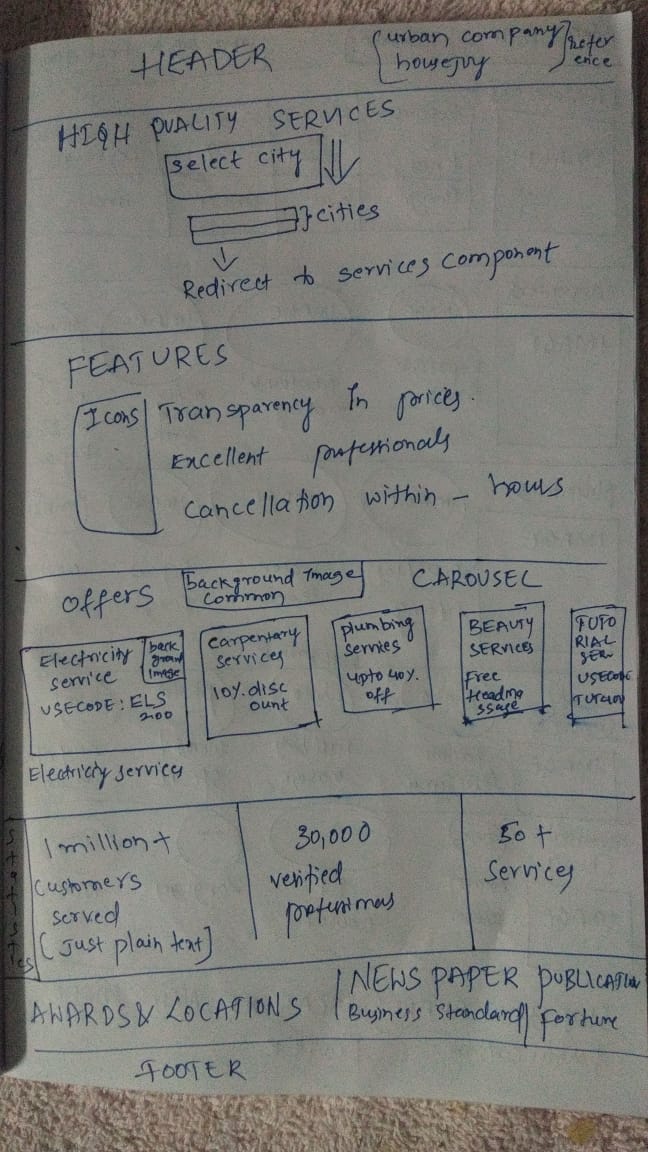 HEADER
(urban company
housejoy
refer
ence
HIGH QUALITY SERVICES
select city
cities
Redirect to services component
FEATURES
Icons
Transparency In prices.
Excellent professionals
Cancellation within - hours
offers
background Image
common
CAROUSEL
Electricity
service
USECODE: ELS
200
back
ground
Image
Carpentary
services
10%. disc
ount
plumbing
services
upto 40%.
off
BEAUTY
SERVICES
Free
Headma
ssage
TUTO
RIAL
SER
USECODE
Electricity services
statistics
1 million +
customers
served
[Just plain text]
30,000
verified
professionals
50 +
Services
AWARDS & LOCATIONS
NEWS PAPER PUBLICATION
Business Standard
Fortune
FOOTER